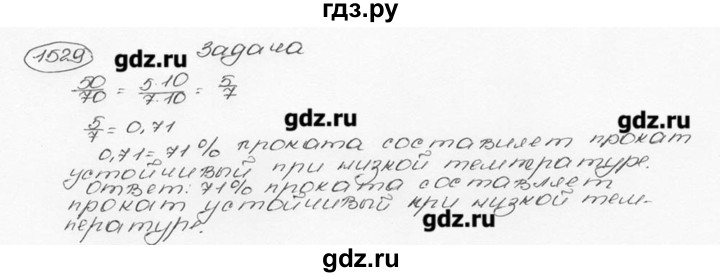 гдз.ру
1529 gdz.ru Задача
50/70 = 5·10/7·10 = 5/7
gdz.ru gdz.ru
5/7 = 0,71
0,71 = 71% проката составляет прокат
устойчивый при низкой температуре.
Ответ: 71% проката составляет
прокат устойчивый при низкой тем-
пературе. gdz.ru